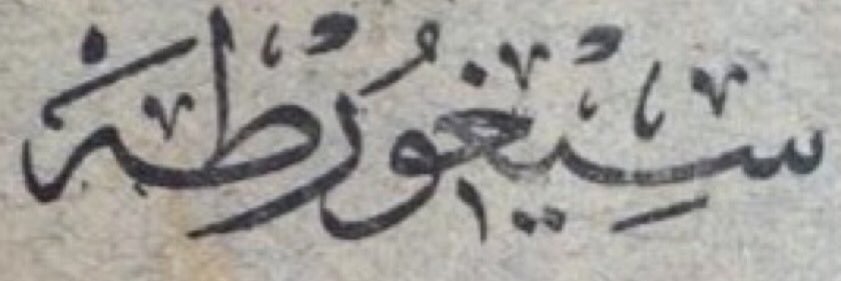 سِيغُورْطَه